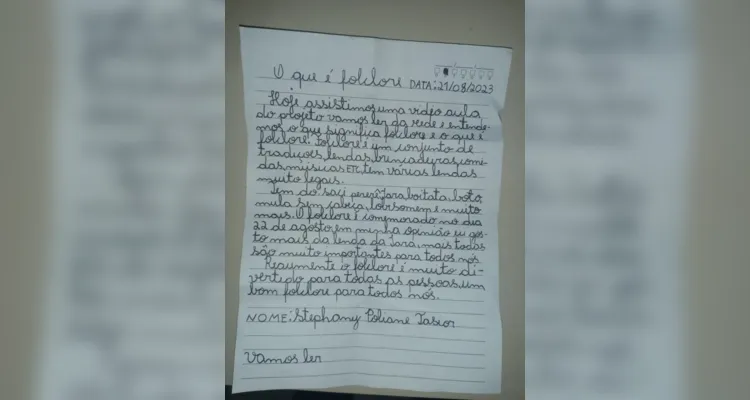 O que é folclore DATA: 21/08/2023
Hoje assistimos uma vídeo aula
do projeto vamos ler da rede e entende-
mos o que significa folclore e o que é
folclore. Folclore é um conjunto de
tradições, lendas, brincadeiras, comi-
das, músicas ETC, tem varias lendas
muito legais.
Tem do saci pererê, Iara, boitata, boto,
mula sem cabeça, lobisomem e muito
mais. O folclore é comemorado no dia
22 de agosto, em minha opinião eu gos-
to mais da lenda da Iara, mais todas
são muito importantes para todos nós.
Reaumente o folclore é muito di-
vertido para todas as pessoas, um
bom folclore para todos nós.
NOME: Stephany Poliane
Vamos ler